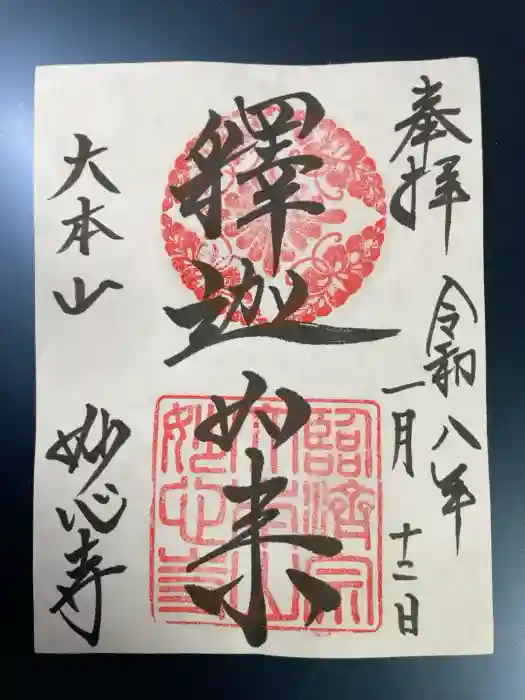 奉拝
令和八年
一月十二日
釋迦如来
臨済宗
大本山
妙心寺
大本山
妙心寺